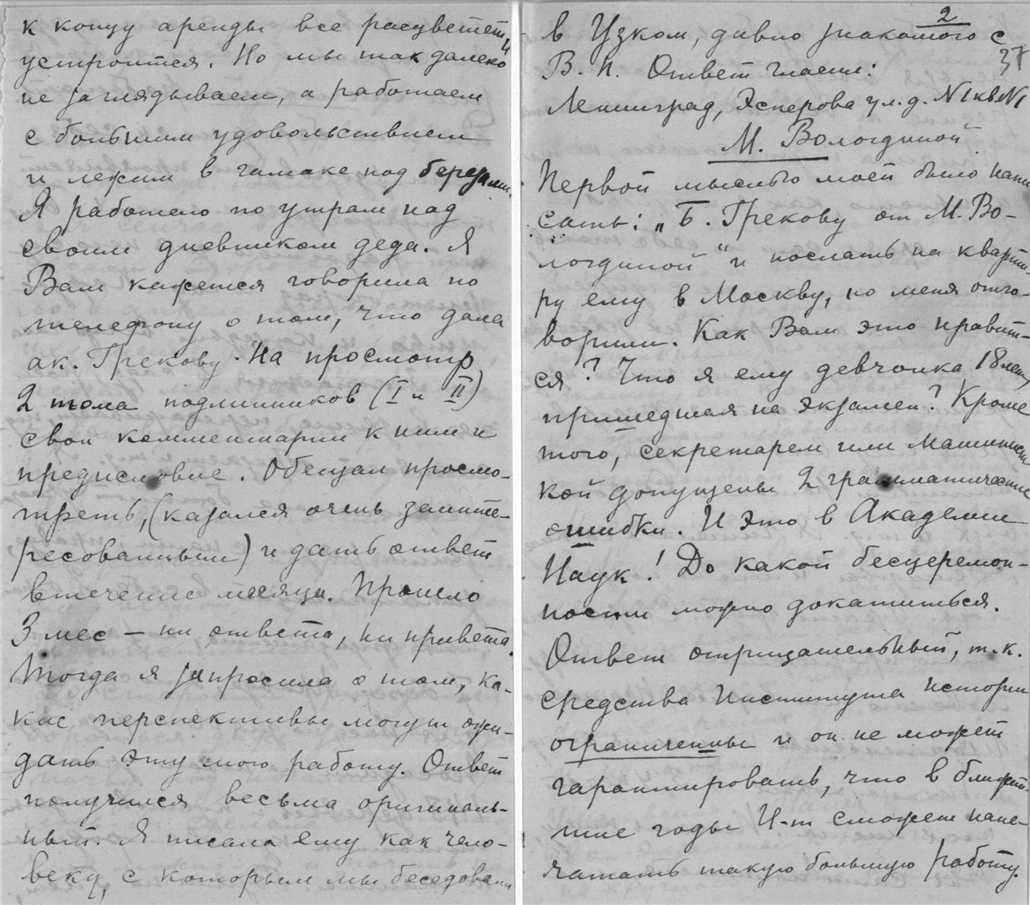 к концу аренды все расцветет и
устроится. Но мы так далеко
не заглядываем, а работаем
с большим удовольствием
и лежим в гамаке под березами.
Я работаю по утрам над
своим дневником деда. Я
Вам кажется говорила по
телефону о том, что дала
ак. Грекову на просмотр
2 тома подлинников (I и II)
свои комментарии к ним и
предисловие. Обещал просмо-
треть, (казался очень заинте-
ресованным) и дать ответ
втечение месяца. Прошло
3 мес – ни ответа, ни привета.
Тогда я запросила о том, ка-
кие перспективы могут ожи-
дать эту мою работу. Ответ
получился весьма оригиналь-
ный. Я писала ему как чело-
веку, с которым мы беседовали
2
37
в Узком, давно знакомого с
В. П. Ответ гласит:
Ленинград, Эсперова ул. д. №1 кв №1
М. Вологдиной.
Первой мыслью моей было напи
сать: „Б. Грекову от М. Во-
логдиной" и послать на кварти-
ру ему в Москву, но меня отго-
ворили. Как Вам это нравит-
ся? Что я ему девчонка 18 лет,
пришедшая на экзамен? Кроме
того, секретарем или машинист
кой допущены 2 грамматические
ошибки. И это в Академии
Наук! До какой бесцеремон-
ности можно докатиться.
Ответ отрицательный, т.к.
средства Института Истории
ограниченны и он не может
гарантировать, что в ближай-
шие годы И-т сможет напе-
чатать такую большую работу.